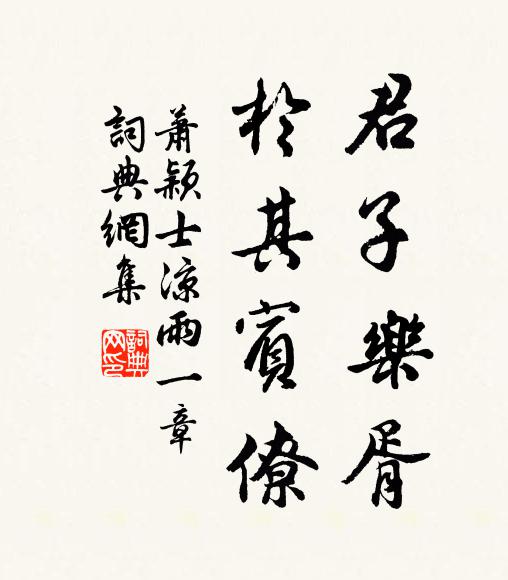 君子樂胥
於其賓僚
蕭潁士涼雨一章
詞典網集
詞典网印